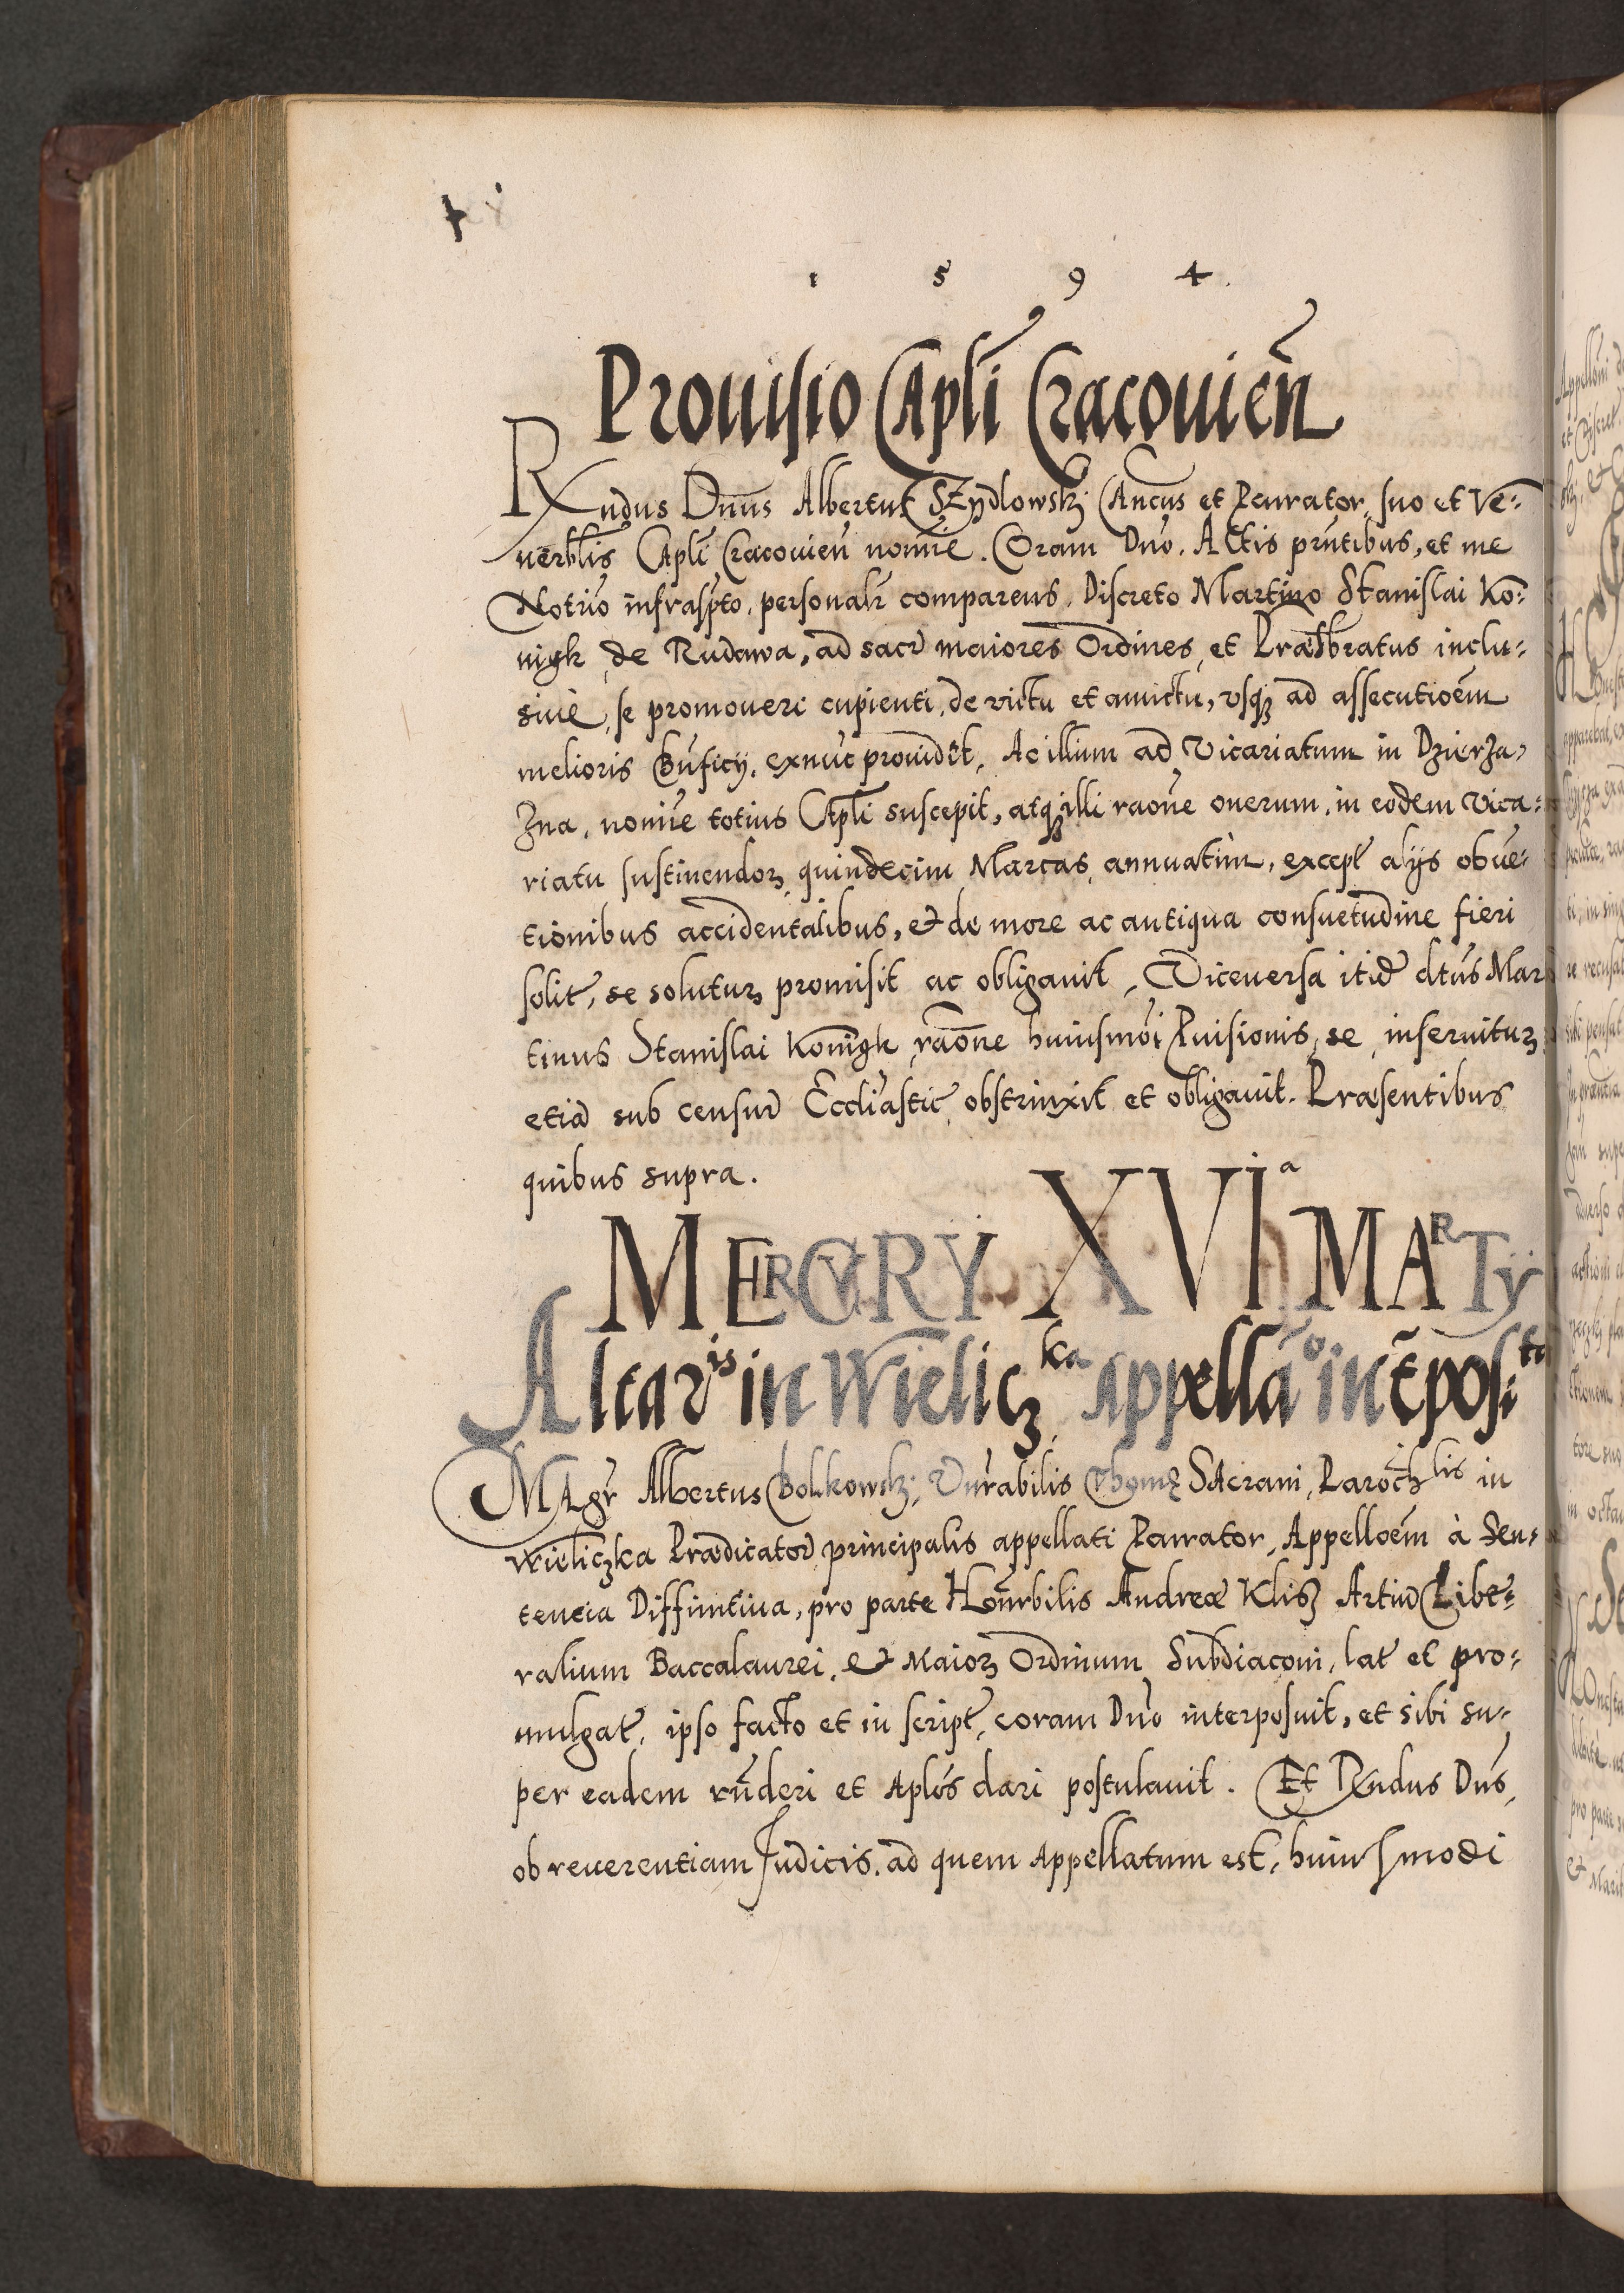 1 5 9 4.
Prouisio Capli Cracouien̄
Rx̄ndus Dn̄us Albertus Szydlowskj Can̄cus et Pcurator, suo et Ve-
nerblis Capli Cracouien̄ noīe. Coram Dn̄o. Actis pn̄tibus, et me
Notrio infrasp̄to, personalr̄ comparens, Discreto Martino Stanislai Ko-
nigk de Rudawa, ad sacr̄ maiores Ordines, et Præsbratus inclu-
siuè, se promoueri cupienti, de victu et amictu, vsq̨ ad assecutioēm
melioris Bn̄ficij, exnūc prouidit, Ac illum ad Vicariatum in Dzierza-
zna, noīe totius Capli suscepit, atq̨ illi raōne onerum, in eodem Vica-
riatu sustinendoꝝ, quindecim Marcas, annuatim, except̄ alijs obuē-
tionibus accidentalibus, et de more ac antiqua consuetudine fieri
solit̄, se soluturꝫ promisit ac obligauit, Viceuersa itid̄ dtus Mar
tinus Stanislai Konigk, raōne huiusmōi Puisionis, se, inseruiturꝫ
etiā sub censur̄ Eccliastic̄, obstrinxit et obligauit. Præsentibus
quibus supra.
MERCVRY XVIa MARTij
Altaris in Wieliczka appellāo intēposita
MAgr̄ Albertus Bolikowskj, Vn̄rabilis Thomę SAcrani, Parochlis in
Wieliczka Prædicator̄ principalis appellati Pcurator, Appelloēm à Sen-
tencia Diffinitiua, pro parte Honrbilis Andreæ Klisz Artiū Libe-
ralium Baccalaurei, et Maioꝝ Ordinum Subdiaconi, lat̄ et pro-
mulgat̄, ipso facto et in script̄, coram Dn̄o interposuit, et sibi su-
per eadem rn̄deri et Aplos dari postulauit. Et Rx̄ndus Dn̄s,
ob reuerentiam Judicis, ad quem Appellatum est, huiusmodi